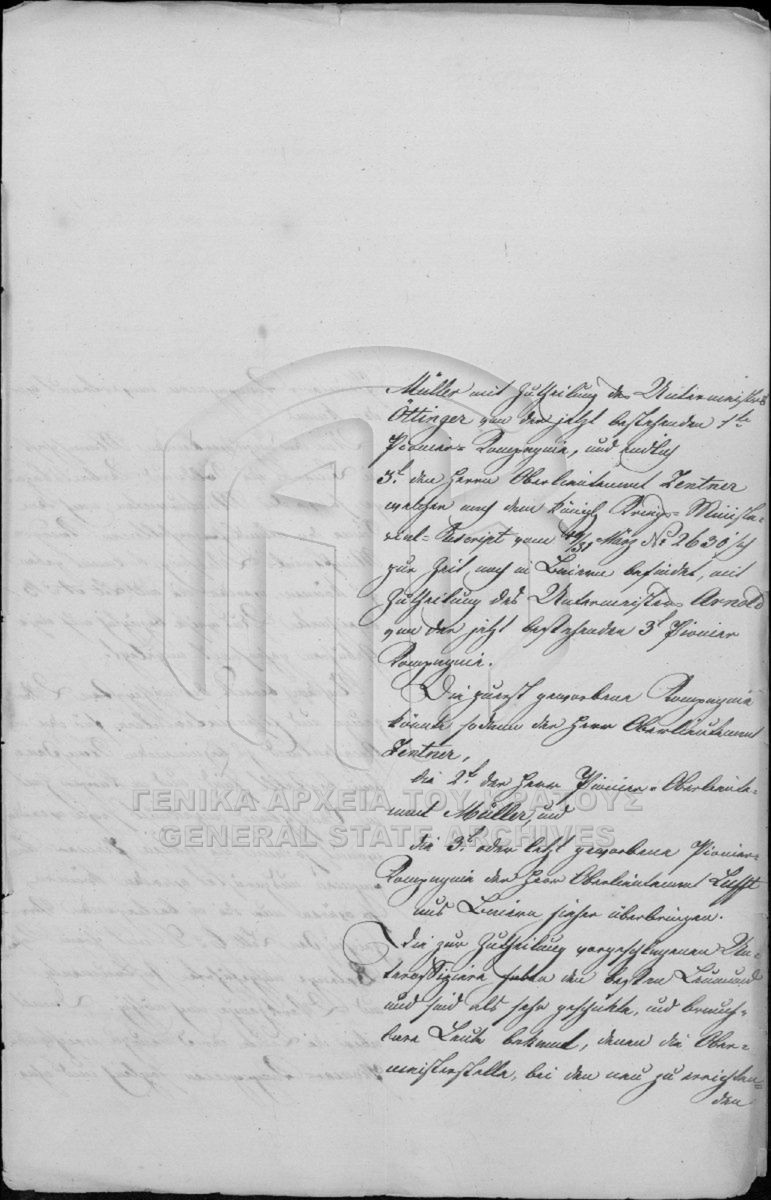 Müller mit Zutheilung des Untermeisters
Öttinger von der jetzt bestehenden 1ten
Pionier-Kompagnie, und endlich
3t. den Herrn Oberlieutenant Zentner
welcher nach dem königl. Kriegs-Ministe-
rial-Rescript vom 19/31 März No 2630
zur Zeit noch in Baiern befindet, mit
Zutheilung des Untermeisters Arnold
von der jetzt bestehenden 3t Pionier
Kompagnie.
Die zuerst geworbene Kompagnie
könnte sodann der Herr Oberlieutenant
Zentner,
die 2t. der Herr Pionier-Oberlieute-
nant Müller, und
die 3t. oder letzt geworbene Pionier-
Kompagnie der Herr Oberlieutenant Lufft
aus Baiern hieher überbringen.
Die zur Zutheilung vorgeschlagenen Un-
teroffiziere haben den besten Leumund
und sind als sehr geschickte, und brauch-
bare Leute bekannt, denen die Ober-
meisterstelle, bei den neu zu errichten-
den
ΓΕΝΙΚΑ ΑΡΧΕΙΑ ΤΟΥ ΚΡΑΤΟΥΣ
GENERAL STATE ARCHIVES